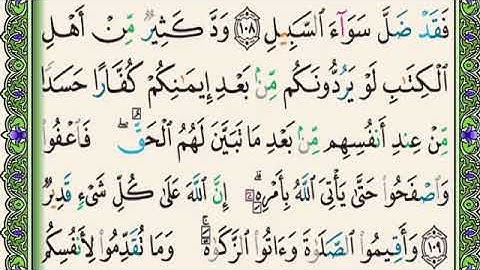 فَقَدْ ضَلَّ سَوَآءَ ٱلسَّبِيلِ ١٠٨ وَدَّ كَثِيرٌ مِّنْ أَهْلِ
ٱلْكِتَٰبِ لَوْ يَرُدُّونَكُم مِّنۢ بَعْدِ إِيمَٰنِكُمْ كُفَّارًا حَسَدًا
مِّنْ عِندِ أَنفُسِهِم مِّنۢ بَعْدِ مَا تَبَيَّنَ لَهُمُ ٱلْحَقُّ ۖ فَٱعْفُوا۟
وَٱصْفَحُوا۟ حَتَّىٰ يَأْتِىَ ٱللَّهُ بِأَمْرِهِۦٓ ۗ إِنَّ ٱللَّهَ عَلَىٰ كُلِّ شَىْءٍ قَدِيرٌ
١٠٩ وَأَقِيمُوا۟ ٱلصَّلَوٰةَ وَءَاتُوا۟ ٱلزَّكَوٰةَ ۚ وَمَا تُقَدِّمُوا۟ لِأَنفُسِكُم